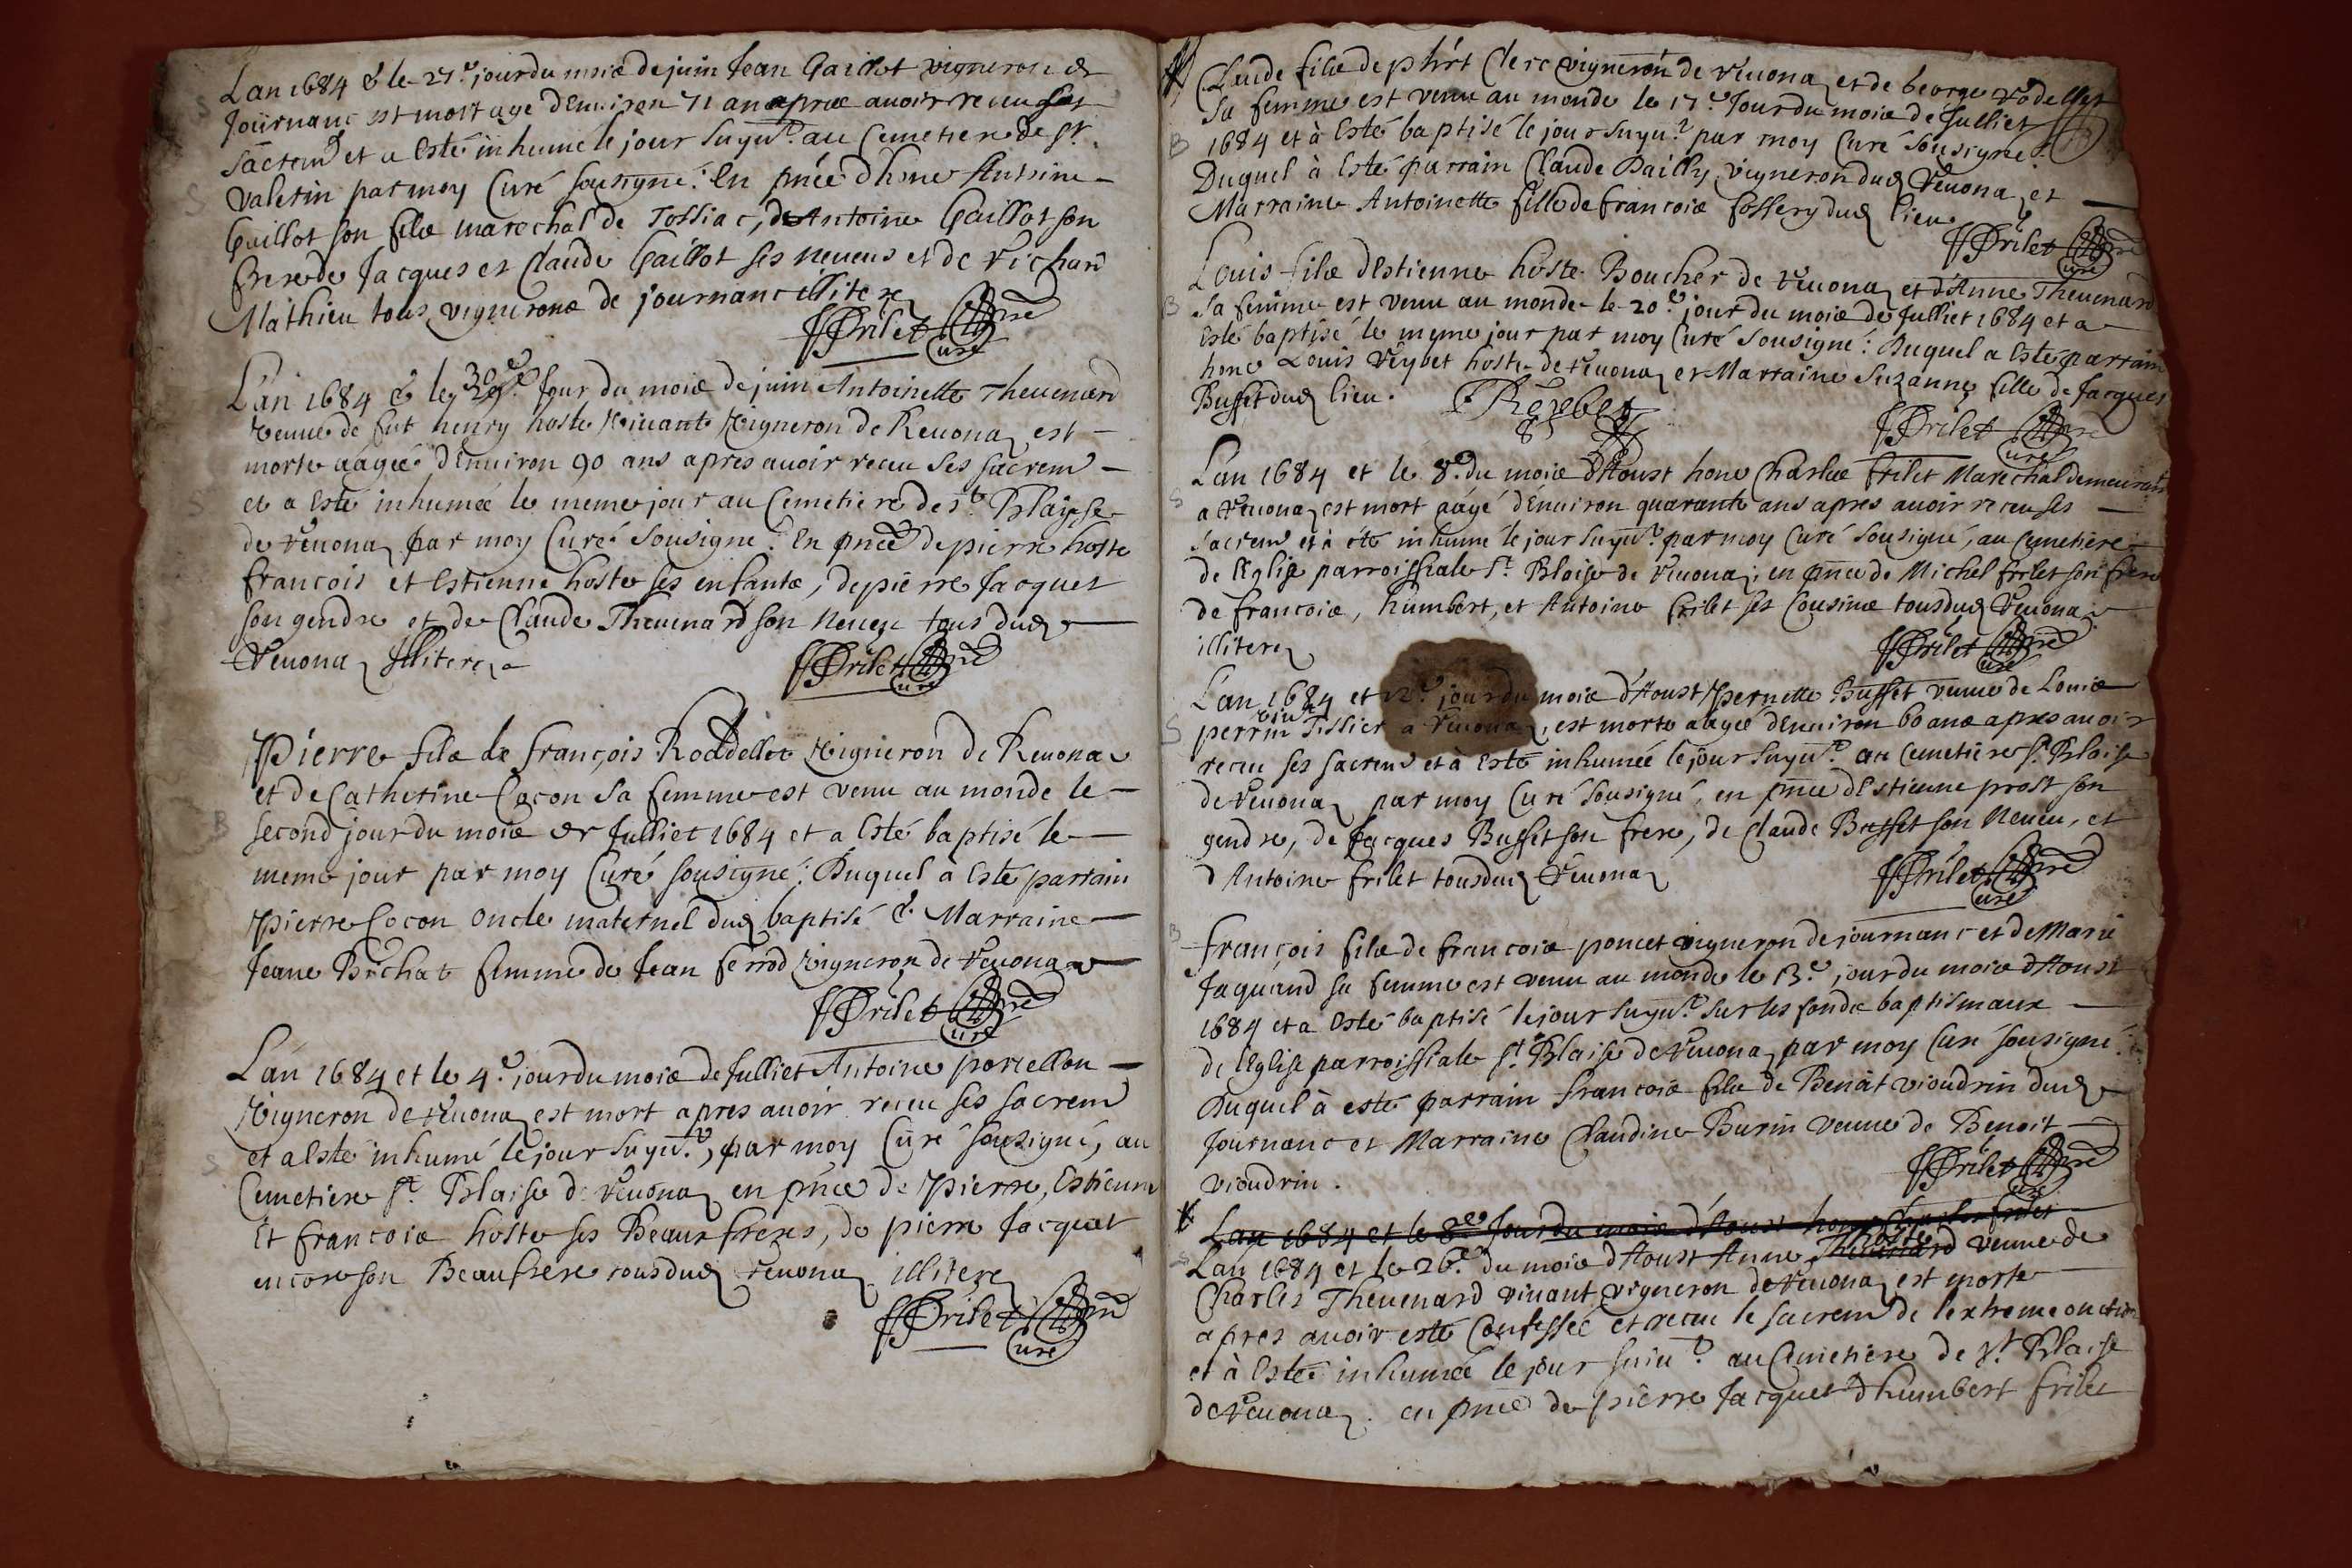 Lan 1684 & le 27.e jour du mois de juin Jean Gaillot vigneron de
Journanc est mort agé d'Environ 71 ans apres avoir receu ses
sacrem et a Esté inhumé le jour suyvt. au Cemetiere de St.
Valerin par moy Curé sousigné: En pnce d'hone Antoine
Gaillot son fils marechal de Tossiac, d'Antoine Gaillot son
frere de Jacques et Claude Gaillot ses neveus et de Richard
Mathieu tous vignerons de journanc illiterez
Frilet ptre
Curé
L'an 1684 & le 30.e 29.e Jour du mois de juin Antoinette Thevenard
veuve de fut henry hoste vivant vigneron de Revonaz est
morte aagée d'Environ 90 ans apres avoir receu ses sacrem
et a Esté inhumée le meme jour au Cemetiere de St. Blayse
de revonaz par moy Curé Sousigné: En pnce de pierre hoste
francois et Estienne hoste ses enfants, de pierre Jacquet
son gendre et de Claude Thevenard son neveu tous dud
Revonaz Illiterez
Frilet ptre
Curé
Pierre fils de françois Roddellet vigneron de Revonaz
et de Catherine Cocon sa femme est venu au monde le
second jour du mois de Julliet 1684 et a Esté baptisé le
meme jour par moy Curé sousigné: Duquel a Esté parrain
Pierre Cocon oncle maternel dud baptisé & Marraine
Jeane Brichat femme de Jean ferrod vigneron de Revonaz
Frilet ptre
Curé
L'an 1684 et le 4.e jour du mois de Julliet Antoine porcellon
Vigneron de revonaz est mort apres avoir receu ses sacrem
et a Esté inhumé le jour suyvt., par moy Curé Sousigné, au
Cemetiere St. Blaise de Revonaz en pnce de Pierre, Estienne
Et francois hoste ses Beaux freres, de pierre Jacquet
encore son Beaufrere tous dud revonaz illiterez
Frilet ptre
Curé
Claude fils de phrt Clerc vigneron de revonaz et de George rodellet
sa femme est venu au monde le 17.e Jour du mois de Julliet
1684 et à Esté baptisé le jour suyvt. par moy Curé sousigné:
Duquel à Esté parrain Claude Bailly vigneron dud Revonaz et
Marraine Antoinette fille de francois fossery dud lieu
Frilet ptre
Curé
Louis fils d'Estienne hoste Boucher de revonaz et d'Anne Thevenard
sa femme est venu au monde le 20.e jour du mois de Julliet 1684 et a
Esté baptisé le meme jour par moy Curé Sousigné: Duquel a Esté parrain
hone Louis Reybet hoste de revonaz et Marraine Suzanne fille de Jacques
Buffet dud lieu. Reybet
Frilet ptre
Curé
Lan 1684 et le 8.e du mois d'Aoust hone Charles frilet Marechal demeurant
a Revonaz est mort aagé d'Environ quarante ans apres avoir receu ses
sacrem et à été inhumé le jour suyvt. par moy Curé Sousigné, au Cemetiere
de l'Eglise parroissiale St. Blaise de Revonaz, en pnce de Michel frilet son frere
de francois, humbert, et Antoine frilet ses Cousins tous dud Revonaz
illiterez
Frilet ptre
Curé
Lan 1684 et 12.e jour du mois d'Aoust Pernette Buffet veuve de Louis
vivt
perrin Tissier a revonaz, est morte aagée d'Environ 60 ans apres avoir
receu ses sacrem et à Esté inhumée le jour suyvt. au Cemetiere St. Blaise
de revonaz par moy Curé Sousigné, en pnce d'Estienne prost son
gendre, de Jacques Buffet son frere, de Claude Buffet son Neveu, et
d'Antoine frilet tous dud Revonaz
Frilet ptre
Curé
françois fils de francois poncet vigneron de journanc et de Marie
Jaquand sa femme est venu au monde le 13.e jour du mois d'Aoust
1684 et a Esté baptisé le jour suyvt. sur les fonds baptismaux
de l'Eglise parroissiale St. Blaise de revonaz par moy Curé sousigné.
Duquel à esté parrain francois fils de Benoit vioudrin dud
Journanc et Marraine Claudine Burin veuve de Benoit
vioudrin.
Frilet ptre
Curé
Lan 1684 et le 8.e Jour du mois d'Aoust hone Charles frilet
hoste
Lan 1684 et le 26.e du mois d'Aoust Anne Thevenard veuve de
Charles Thevenard vivant vigneron de revonaz est morte
apres avoir esté Confessée et receu le sacrem de l'extreme onction
et à Esté inhumée le jour suivt. au Cemetiere de St. Blaise
de revonaz. en pnce de pierre Jacquet d'humbert frilet